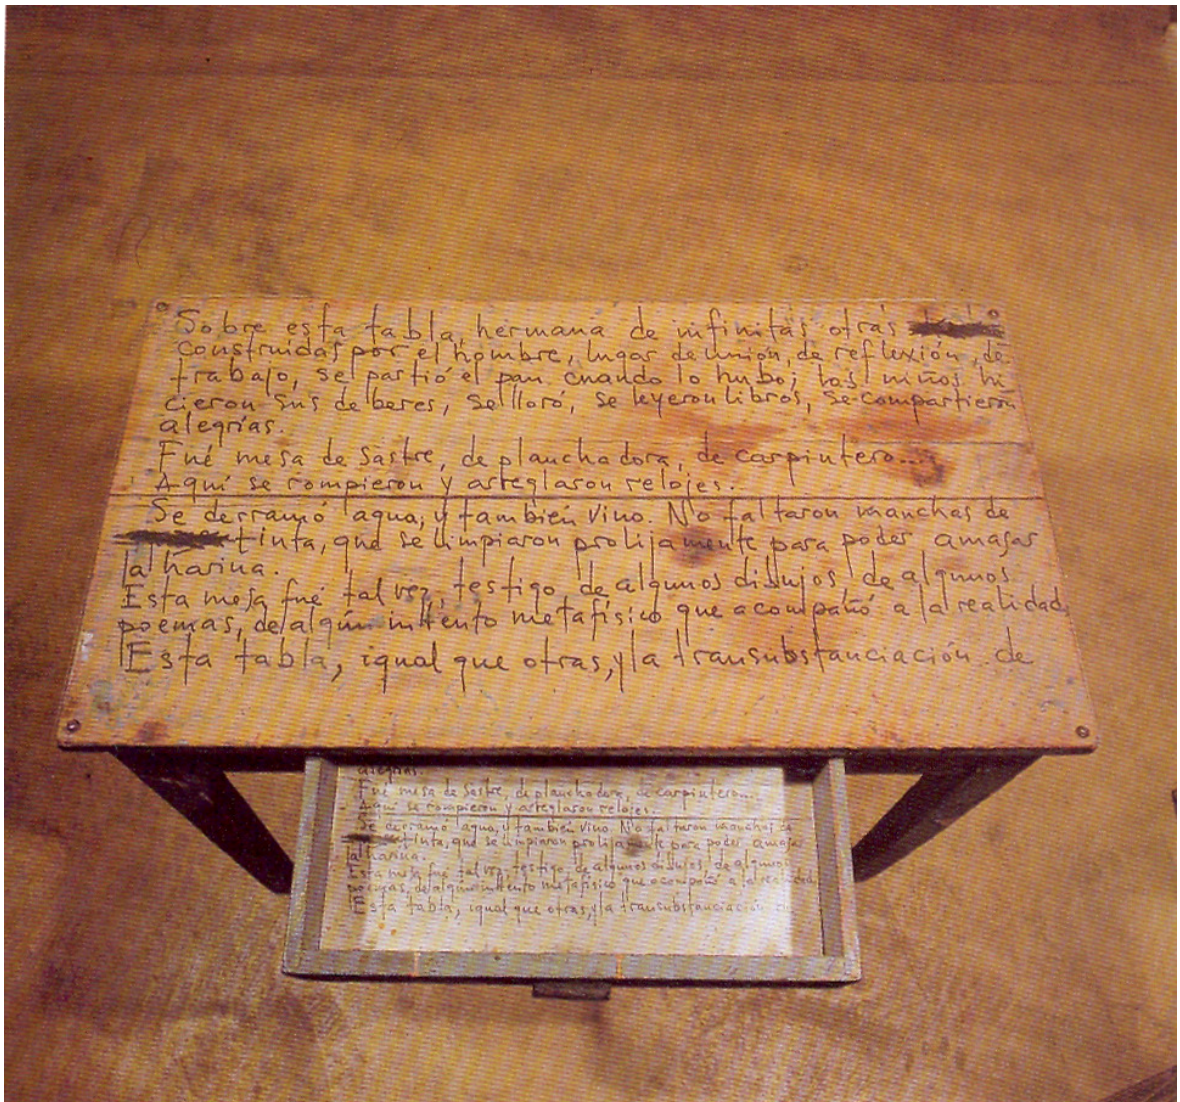 Sobre esta tabla, hermana de infinitas otras
construidas por el hombre, lugar de unión, de reflexión, de
trabajo, se partió el pan cuando lo hubo; los niños hi-
cieron sus deberes, se lloró, se leyeron libros, se compartieron
alegrías.
Fué mesa de sastre, de planchadora, de carpintero...
Aquí se rompieron y arreglaron relojes.
Se derramó agua, y también vino. No faltaron manchas de
tinta, que se limpiaron prolijamente para poder amasar
la harina.
Esta mesa fué tal vez, testigo de algunos dibujos, de algunos
poemas, de algún intento metafísico que acompañó a la realidad.
Esta tabla, igual que otras, y la transubstanciación de
alegrías.
Fué mesa de sastre, de planchadora, de carpintero...
Aquí se rompieron y arreglaron relojes.
Se derramó agua, y también vino. No faltaron manchas de
tinta, que se limpiaron prolijamente para poder amasar
la harina.
Esta mesa fué tal vez, testigo de algunos dibujos, de algunos
poemas, de algún intento metafísico que acompañó a la realidad.
Esta tabla, igual que otras, y la transubstanciación de